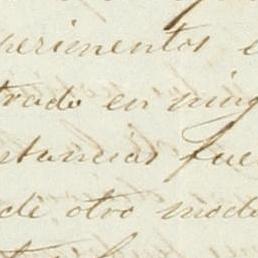 perimentos e
trado en ning
stancias fue
de otro modo